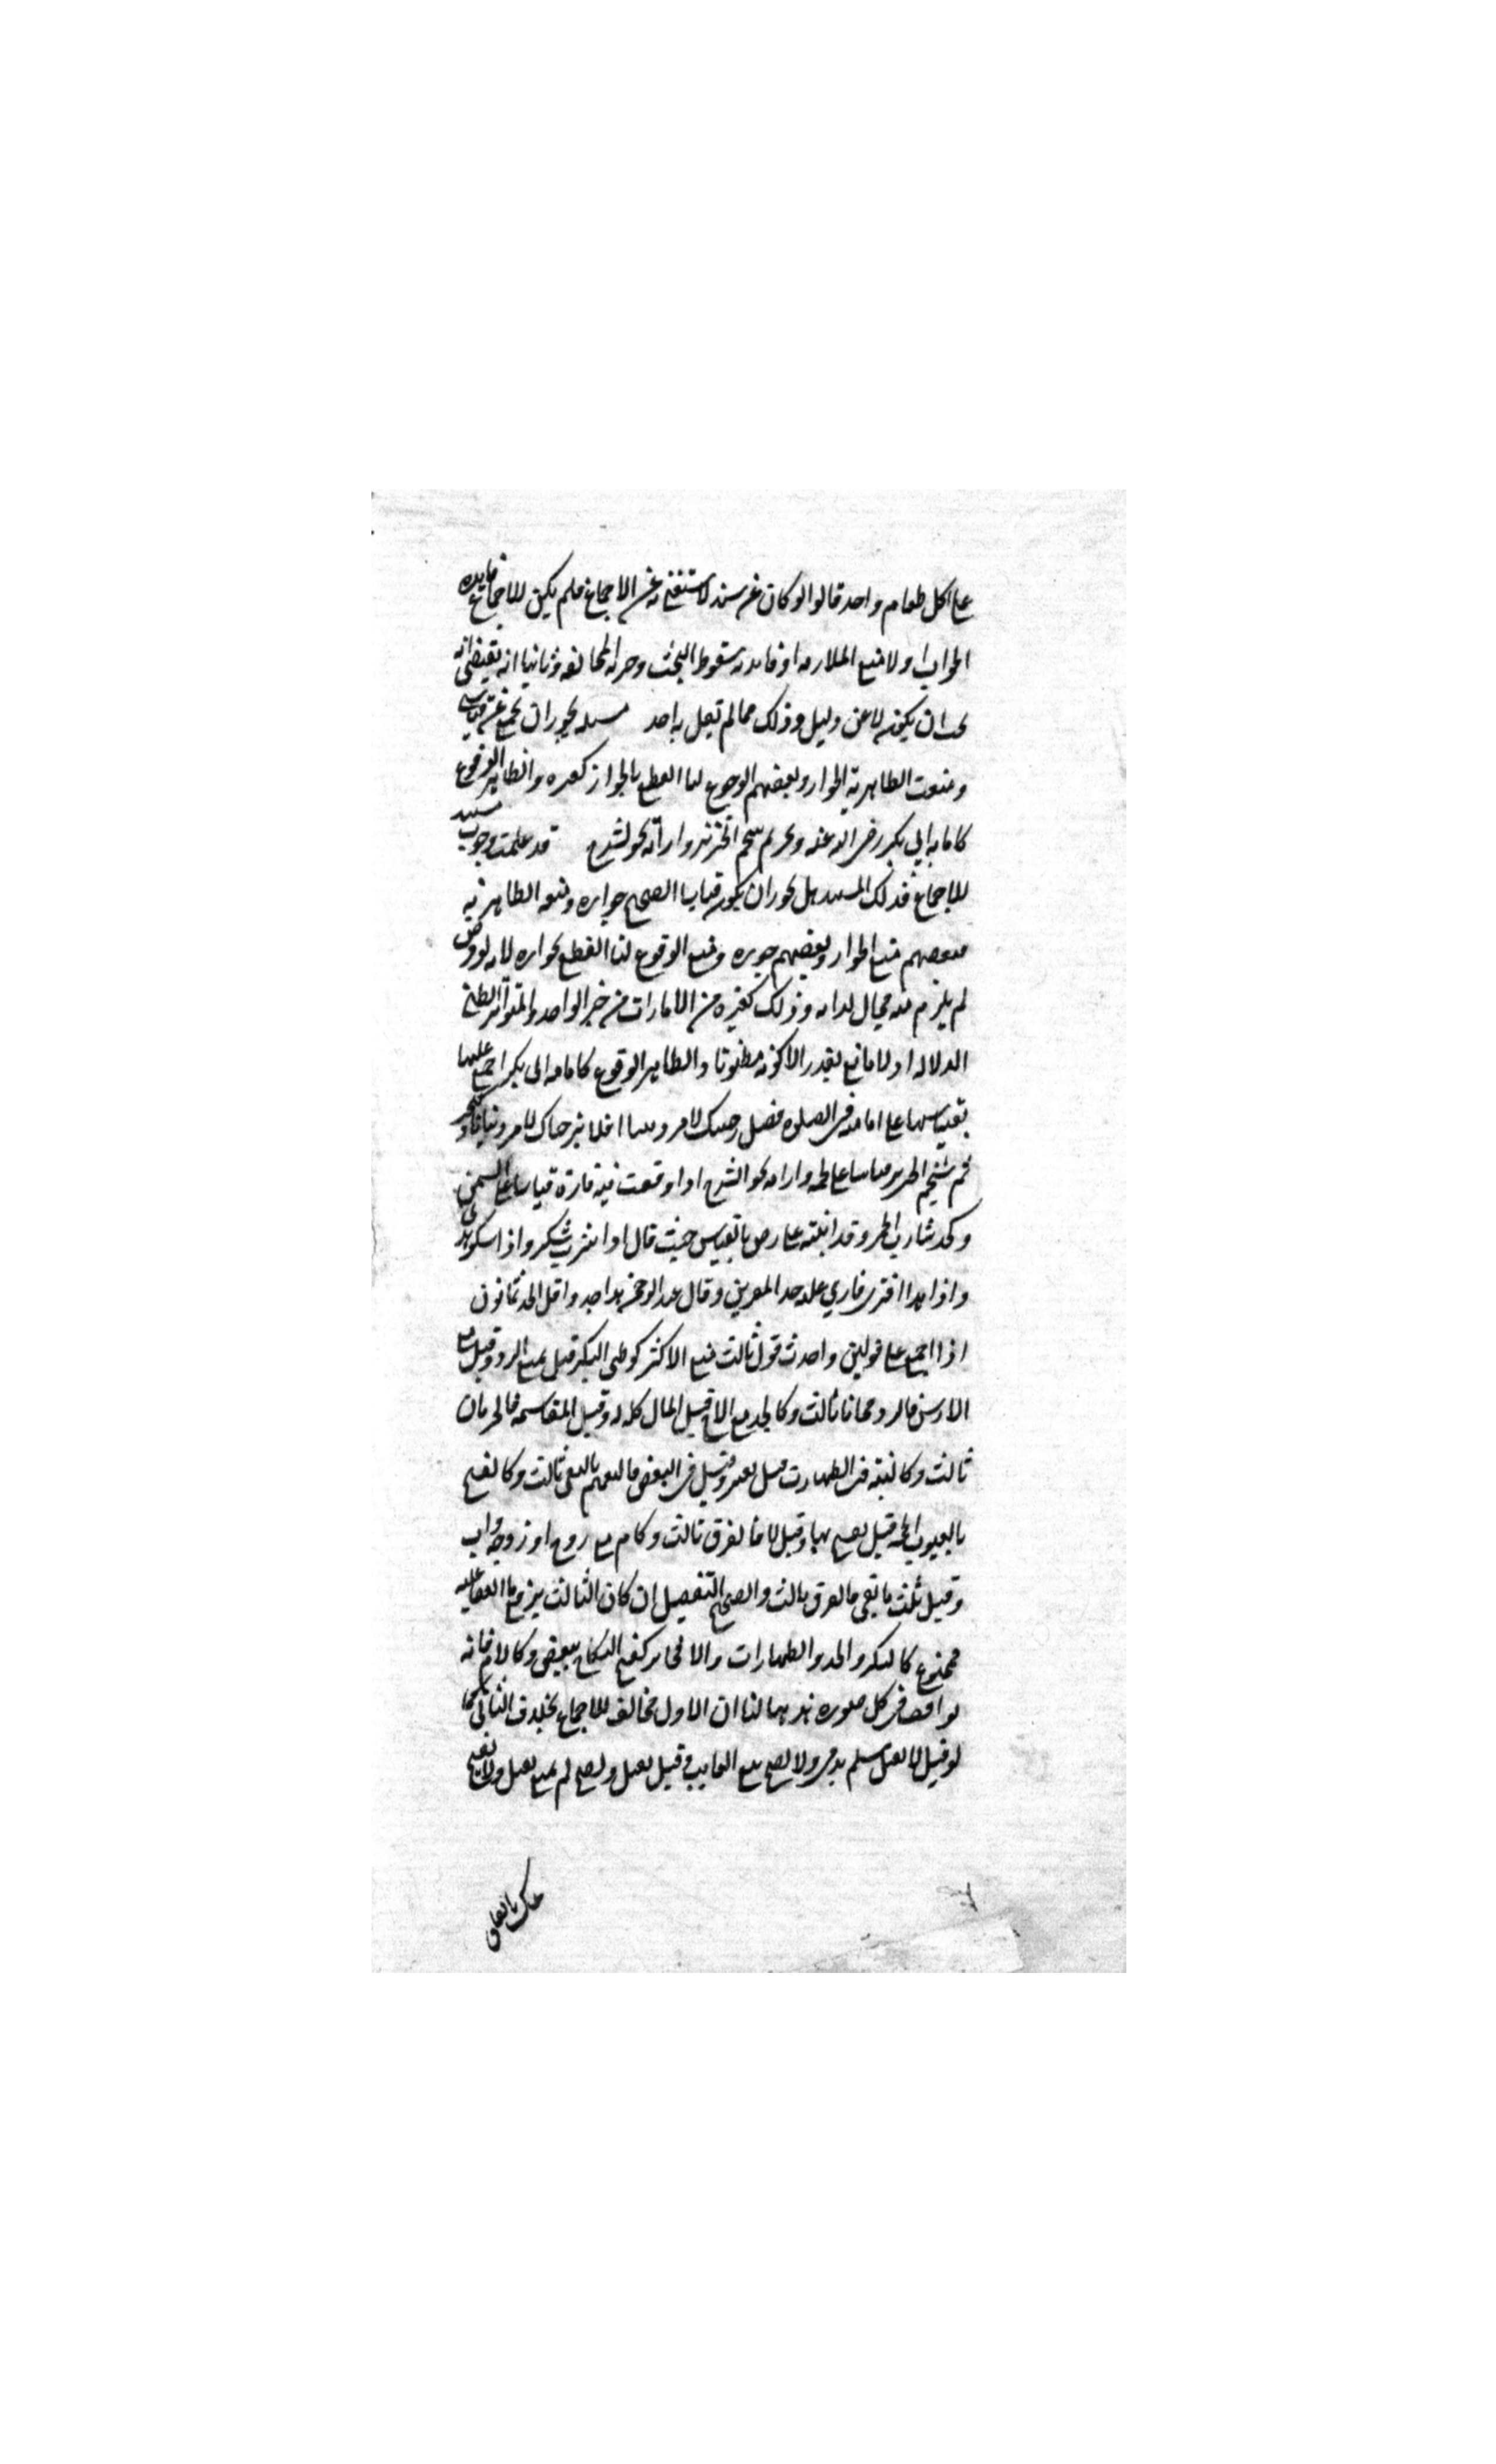 على اكل طعام واحد قالوا لو كان عن سند لاستغنى به عن الاجماع فلم يكن للاجماع فايده
الجواب اولا منع الملازمه اذ فايدته سقوط البحث وحرمة المخالفه وثانيا انه يقتضى انه
يجب ان يكون لا عن دليل وذلك مما لم يقل به احد مسله يجوز ان يجمع عن قياس
ومنعت الظاهرية الجواز وبعضهم الوقوع لنا القطع بالجواز كغيره والظاهر الوقوع
كامامة ابي بكر رضي الله عنه وتحريم شحم الخنزير واراقة نحو الشيرج قد علمت وجوب سند
للاجماع فذلك السند هل يجوز ان يكون قياسا الصحيح جوازه ومنعه الظاهرية
فبعضهم منع الجواز وبعضهم جوزه ومنع الوقوع لنا القطع بجوازه لانه لو فرض
لم يلزم منه محال لذاته وذلك كغيره من الامارات من خبر الواحد والمتواتر الظني
الدلاله اذ لا مانع يقدر الا كونه مظنونا والظاهر الوقوع كامامه ابى بكر اجمع عليها
بقياسها على امامته فى الصلوه فقيل رضيك لامر ديننا افلا نرضاك لامر دنيانا وكتحريم
شحم الخنزير قياسا على لحمه واراقه نحو الشيرج اذا وقعت فيه فارة قياسا على السمن
وكحد شارب الخمر وقد اثبته على رض بالقياس حيث قال اذا شرب سكر واذا سكر هذى
واذا هذا افترى فارى عليه حد المفترين وقال عبد الرحمن هذا حد واقل الحد ثمانون
اذا اجمع على قولين واحدث قول ثالث منع الاكثر كوطى البكر قيل يمنع الرد وقيل مع
الارش فالرد مجانا ثالث وكالجد مع الاخ قيل المال كله له وقيل المقاسمه فالحرمان
ثالث وكالنية فى الطهارت قيل تعتبر وقيل فى البعض فالتعميم بالنفى ثالث وكالفسخ
بالعيوب الخمسة قيل يفسخ بها وقيل لا فالفرق ثالث وكام مع زوج او زوجه واب
وقيل ثلث ما بقى فالفرق ثالث والصحيح التفصيل ان كان الثالث يرفع ما اتفقا عليه
فممنوع كالبكر والجد والطهارات والا فجايز كفسخ النكاح ببعض وكالام فانه
يوافق فى كل صوره مذهبا لنا ان الاول مخالف للاجماع بخلاف الثانى كما
لو قيل لا يقتل مسلم بذمى ولا يصح بيع الغايب وقيل يقتل ويصح لم يمنع يقتل ولا يصح